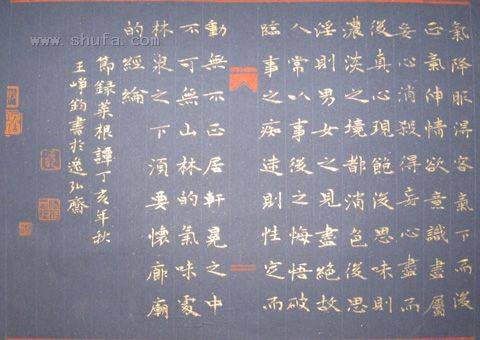 氣降服得客氣下而後
正氣伸情欲意識盡屬
妄心消殺得妄心盡而
後真心現飽後思味則
濃淡之境都消色後思
淫則男女之見盡絕故
人常以事後之悔悟破
臨事之痴迷則性定而
動無不正居軒冕之中
不可無山林的氣味處
林泉之下須要懷廊廟
的經綸
節録菜根譚丁亥年秋
王崢鈞書於逸弘齋
shufa.com